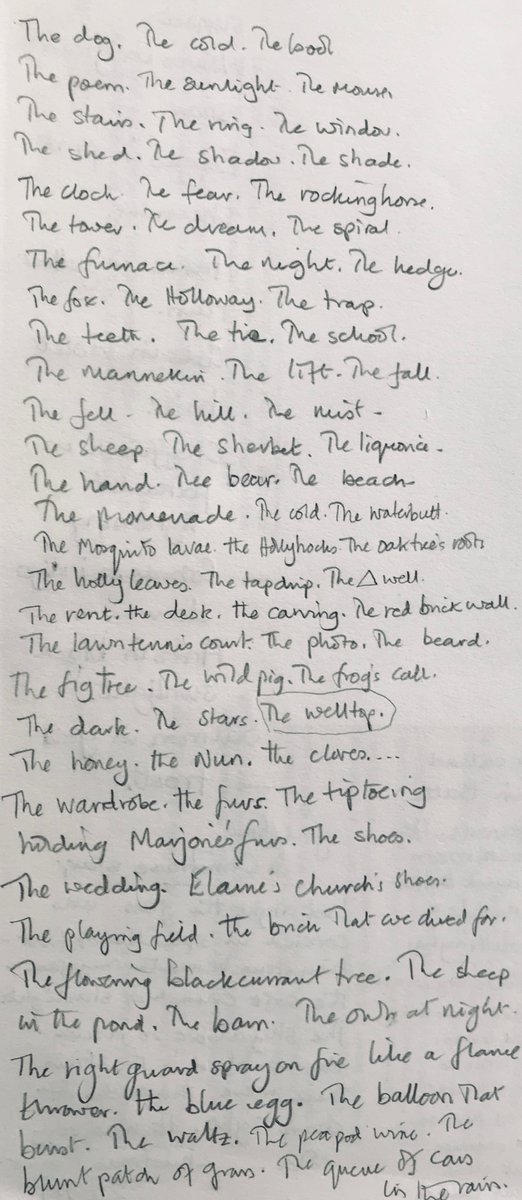 The dog. The cold. The book
The poem. The sunlight. The Mouse
The stairs. The ring. The window.
The shed. The shadow. The shade.
The clock. The fear. The rockinghorse.
The tower. The dream. The spiral.
The furnace. The night. The hedge.
The fox. The Holloway. The trap.
The teeth. The tie. The school.
The mannekin. The lift. The fall.
The fell. The hill. The mist.
The sheep. The sherbet. The liquorice.
The hand. The bear. The beach
The promenade. The cold. The waterbutt.
The Mosquito larvae. the Hollyhocks. The oaktree's roots
The holly leaves. The tapdrip. The △ well.
The rent. the desk. the carving. The red brick wall.
The lawn tennis court. The photo. The beard.
The fig tree. The wild pig. The frog's call.
The dark. The stars. The welltop.
The honey. the Nun. the cloves....
The wardrobe. the furs. The tiptoeing
holding Marjorie's furs. The shoes.
The wedding. Elaine's church's shoes.
The playing field. the brick That we dived for.
The flowering blackcurrant tree. The sheep
in the pond. The barn. The owls at night.
The right guard spray on fire like a flame
thrower. the blue egg. The balloon That
burst. The waltz. The peapod wine. The
blunt patch of grass. The queue of cars
in the rain.